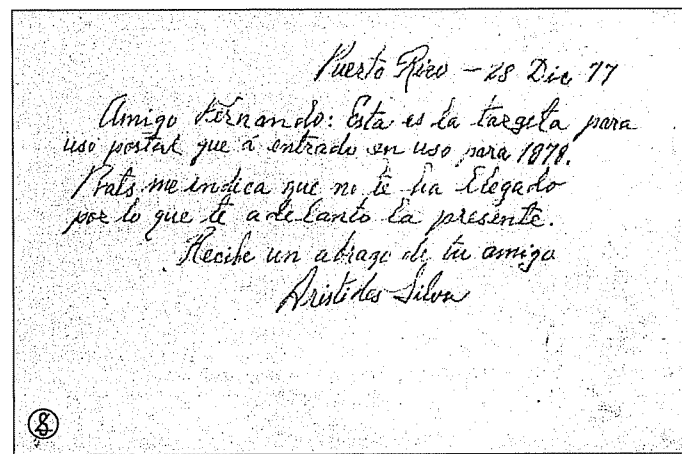 Puerto Rico - 28 Dic 77
Amigo Fernando: Esta es la targeta para
uso postal que á entrado en uso para 1878.
Prats me indica que no te ha llegado
por lo que te adelanto la presente.
Recibe un abrazo de tu amigo
Aristides Silva